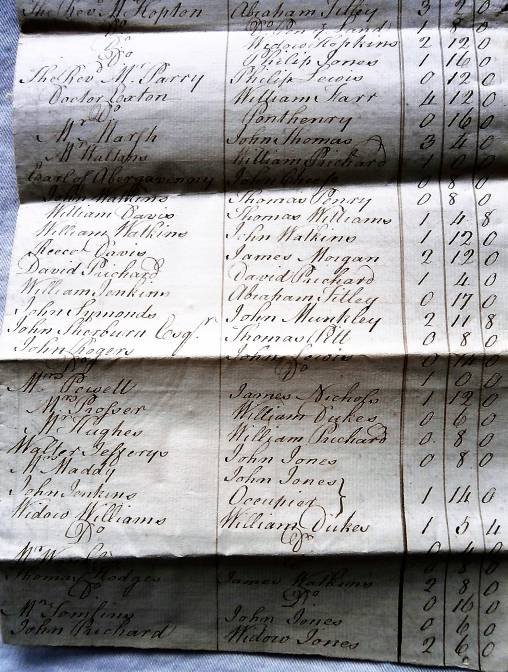 The Rev. Mr. Hopton Abraham Tilley 3 2 0
Do
Do Widow Hopkins 2 12 0
Do Philip Jones 1 16 0
The Rev. Mr. Parry Philip Lewis 0 12 0
Doctor Coxton William Farr 4 12 0
Do Ponhenry 0 16 0
Mr. Marsh John Thomas 3 4 0
Mr. Watkins William Prichard 1 0 0
Earl of Abergavenny John 0 8 0
John Watkins Thomas Penry 0 8 0
William Davis Thomas Williams 1 4 8
William Watkins John Watkins 1 12 0
Reece Davis James Morgan 2 12 0
David Prichard David Prichard 1 4 0
William Jenkins Abraham Tilley 0 17 0
John Symonds John Munkley 2 11 8
John Sherburn Esqr. Thomas Pitt 0 8 0
John Rogers John Lewis 0 14 0
Do Do 1 0 0
Mrs. Powell James Nicholls 1 12 0
Mrs. Prosser William Dukes 0 6 0
Mr. Hughes William Prichard 0 8 0
Walter Jefferys John Jones 0 8 0
Mr. Maddy John Jones
John Jenkins Occupier } 1 14 0
Widow Williams William Dukes 1 5 4
Do Do
0 4 0
Thomas Hodges James Watkins 2 8 0
Do Do 0 16 0
Mr. Tomlins John Jones 0 6 0
John Prichard Widow Jones 2 6 0